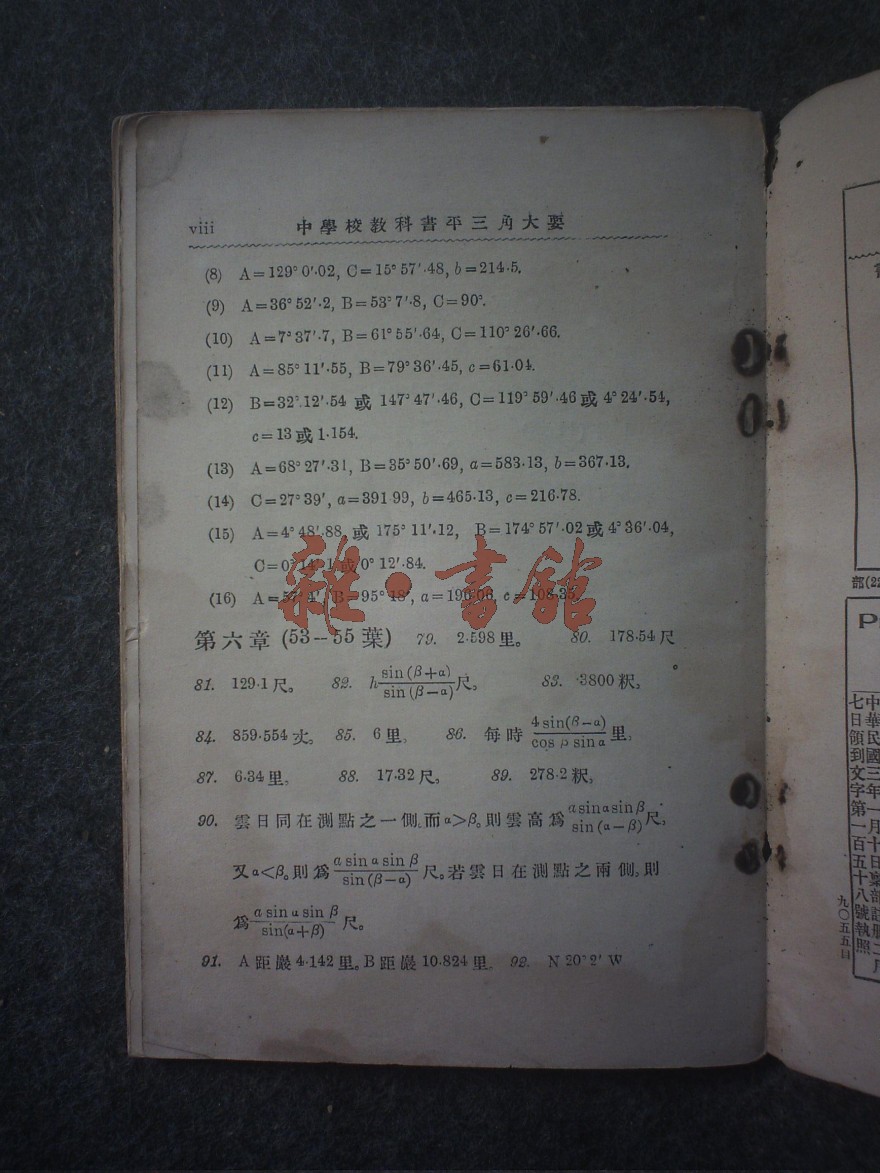 viii 中學校教科書平三角大要
(8) A=129° 0′·02, C=15° 57′·48, b=214·5.
(9) A=36° 52′·2, B=53° 7′·8, C=90°.
(10) A=7° 37′·7, B=61° 55′·64, C=110° 26′·66.
(11) A=85° 11′·55, B=79° 36′·45, c=61·04.
(12) B=32° 12′·54 或 147° 47′·46, C=119° 59′·46 或 4° 24′·54,
c=13 或 1·154.
(13) A=68° 27′·31, B=35° 50′·69, a=583·13, b=367·13.
(14) C=27° 39′, a=391 99, b=465·13, c=216·78.
(15) A=4° 48′·88, 或 175° 11′·12, B=174° 57′·02 或 4° 36′·04,
C=0° 14′·1 或 0° 12′·84.
(16) A=57° 4′, B=95° 18′, a=196·06, c=108·35.
雜·書館
第六章 (53--55 葉) 79. 2·598 里。 80. 178·54 尺。
81. 129·1 尺。 82. h sin (β+α)/sin (β−α) 尺。 83. ·3800 粎。
84. 859·554 丈。 85. 6 里。 86. 每時 4 sin(β−α)/cos β sin α 里。
87. 6·34 里。 88. 17·32 尺。 89. 278·2 粎。
90. 雲日同在測點之一側。而 α>β。則雲高爲 a sin α sin β/sin (α−β) 尺。
又 α<β。則爲 a sin α sin β/sin (β−α) 尺。若雲日在測點之兩側。則
爲 a sin α sin β/sin(α+β) 尺。
91. A 距巖 4·142 里。B 距巖 10·824 里。 92. N 20° 2′ W
部(22
中華民國三年一月十
七日領到文字第一百五十八號執照
九〇五五口